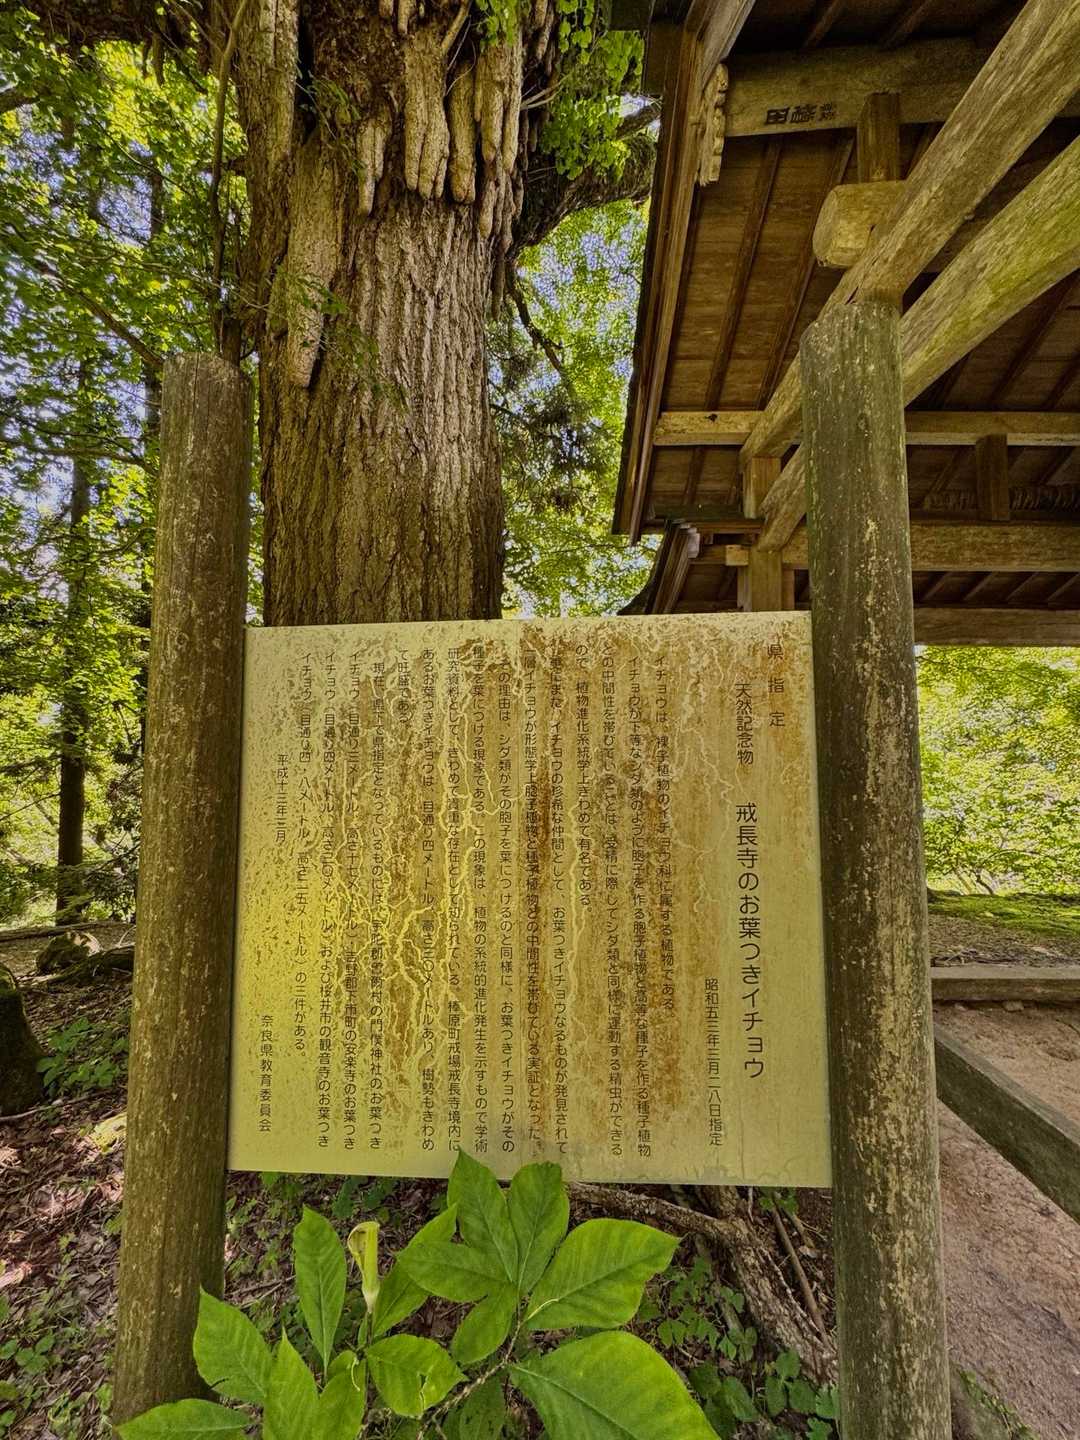 県指定
天然記念物 戒長寺のお葉つきイチョウ
昭和五三年三月二八日指定
イチョウは、裸子植物のイチョウ科に属する植物である。
イチョウが下等なシダ類のように胞子を作る胞子植物と高等な種子を作る種子植物
との中間性を帯びていることは、受精に際してシダ類と同様に運動する精虫ができる
ので、植物進化系統学上きわめて有名である。
更にまた、イチョウの珍希な仲間として、お葉つきイチョウなるものが発見されて
一層イチョウが形態学上胞子植物と種子植物との中間性を帯びている実証となった。
その理由は、シダ類がその胞子を葉につけるのと同様に、お葉つきイチョウがその
種子を葉につける現象である。この現象は、植物の系統的進化発生を示すもので学術
研究資料として、きわめて貴重な存在として知られている。榛原町戒場戒長寺境内に
あるお葉つきイチョウは、目通り四メートル、高さ三〇メートルあり、樹勢もきわめ
て旺盛である。
現在、県下で県指定となっているものには、宇陀郡御杖村の門僕神社のお葉つき
イチョウ（目通り三メートル、高さ十七メートル）、吉野郡下市町の安楽寺のお葉つき
イチョウ（目通り四メートル、高さ二〇メートル）、および桜井市の観音寺のお葉つき
イチョウ（目通り四・八メートル、高さ二五メートル）の三件がある。
平成十三年三月
奈良県教育委員会